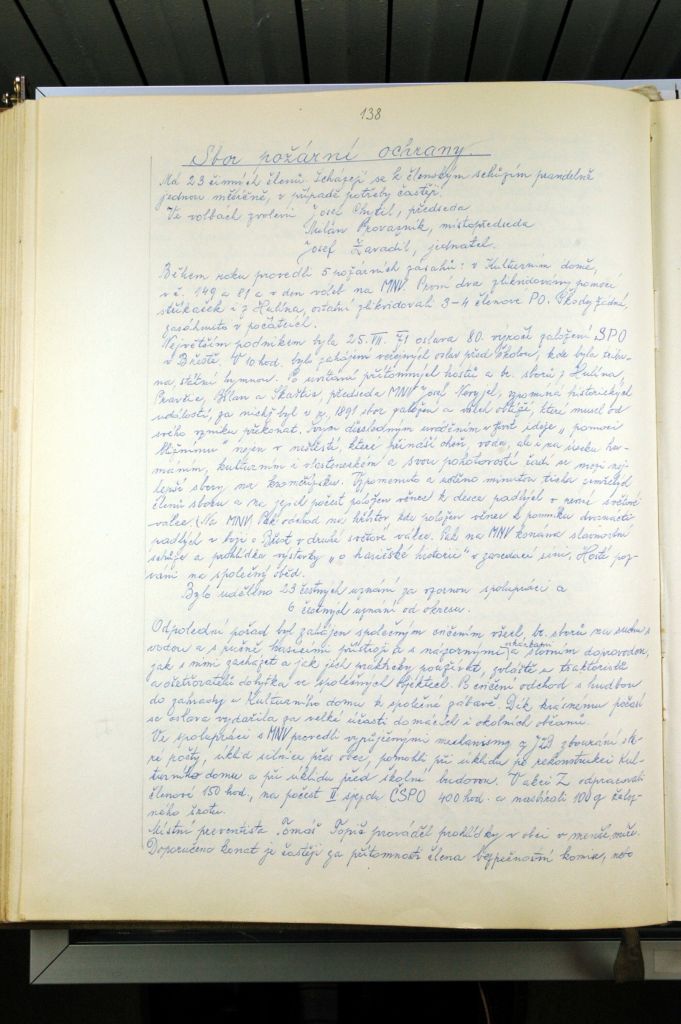 138
Sbor požární ochrany.
Má 23 činných členů. Scházejí se k členským schůzím pravidelně
jednou měsíčně, v případě potřeby častěji.
Ve volbách zvoleni Josef Chytil, předseda
Milán Provazník, místopředseda
Josef Zavadil, jednatel.
Během roku provedli 5 požárních zásahů: v Kulturním domě,
v č. 149 a 81 a v den voleb na MNV. První dva zlikvidovány pomocí
stříkaček i z Hulína, ostatní zlikvidovali 3-4 členové PO. Škody žádné,
zasáhnuto v počátcích.
Největším podnikem byla 25. VII. 71 oslava 80. výročí založení SPO
v Břestě. V 10 hod. bylo zahájení veřejných oslav před školou, kde byla hrá-
na státní hymnou. Po uvítání přítomných hostů a br. sborů z Hulína,
Pravčic, Bílan a Skaštic, předseda MNV Josef vzpomíná historických
událostí, za nichž byl v r. 1891 sbor založen a všech obtíží, které musel od
svého vzniku překonat. Svým důsledným uváděním v život ideje „pomoci
bližnímu" nejen v neštěstí, které přináší oheň, voda, ale i na úseku hu-
mánním, kulturním i vlasteneckém a svou pohotovostí řadí se mezi nej-
lepší sbory na kroměřížsku. Vzpomenuto a uctěno minutou ticha zemřelých
členů sboru a na jejich počest položen věnec k desce padlých v první světové
válce (Na MNV). Pak odchod na hřbitov kde položen věnec k pomníku dvanácti
padlých v boji o Břest v druhé světové válce. Pak na MNV konána slavnostní
schůze a prohlídka výstavky „o hasičské historii" v zasedací síni. Hosté poz-
váni na společný oběd.
Bylo uděleno 23 čestných uznání za vzornou spolupráci a
6 čestných uznání od okresu.
Odpolední pořad byl zahájen společným cvičením všech br. sborů na sucho s
vodou a s pěnou, hasícími přístroji a s názornými ukázkami a slovním doprovodem,
jak s nimi zacházet a jak jich prakticky používat, zvláště u traktoristů
a ošetřovatelů dobytka ve společných objektech. Po cvičení odchod s hudbou
do zahrady u Kulturního domu k společné zábavě. Dík krásnému počasí
se oslava vydařila za velké účasti domácích i okolních občanů.
Ve spolupráci s MNV provedli vypůjčenými mechanismy z JZD zbourání sta-
ré pošty, úklid silnice přes obec, pomohli při úklidu po rekonstrukci Kul-
turního domu a při úklidu před školní budovou. V akci Z odpracovali
členové 150 hod., na počest II sjezdu ČSPO 400 hod. a nasbírali 100 q želez-
ného šrotu.
Místní preventista Tomáš prováděl prohlídky v obci v menší míře.
Doporučeno konat je častěji za přítomnosti člena bezpečnostní komise, nebo